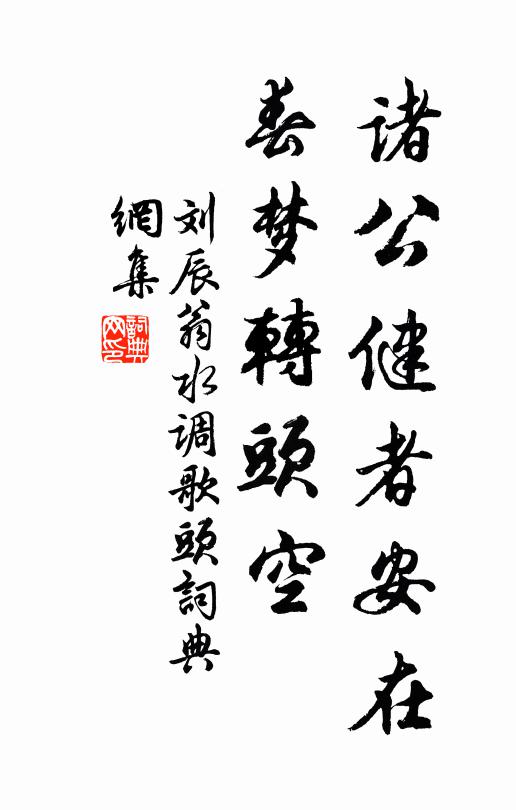 諸公健者安在
春梦轉頭空
刘辰翁水调歌頭詞典
網集
詞典
网印